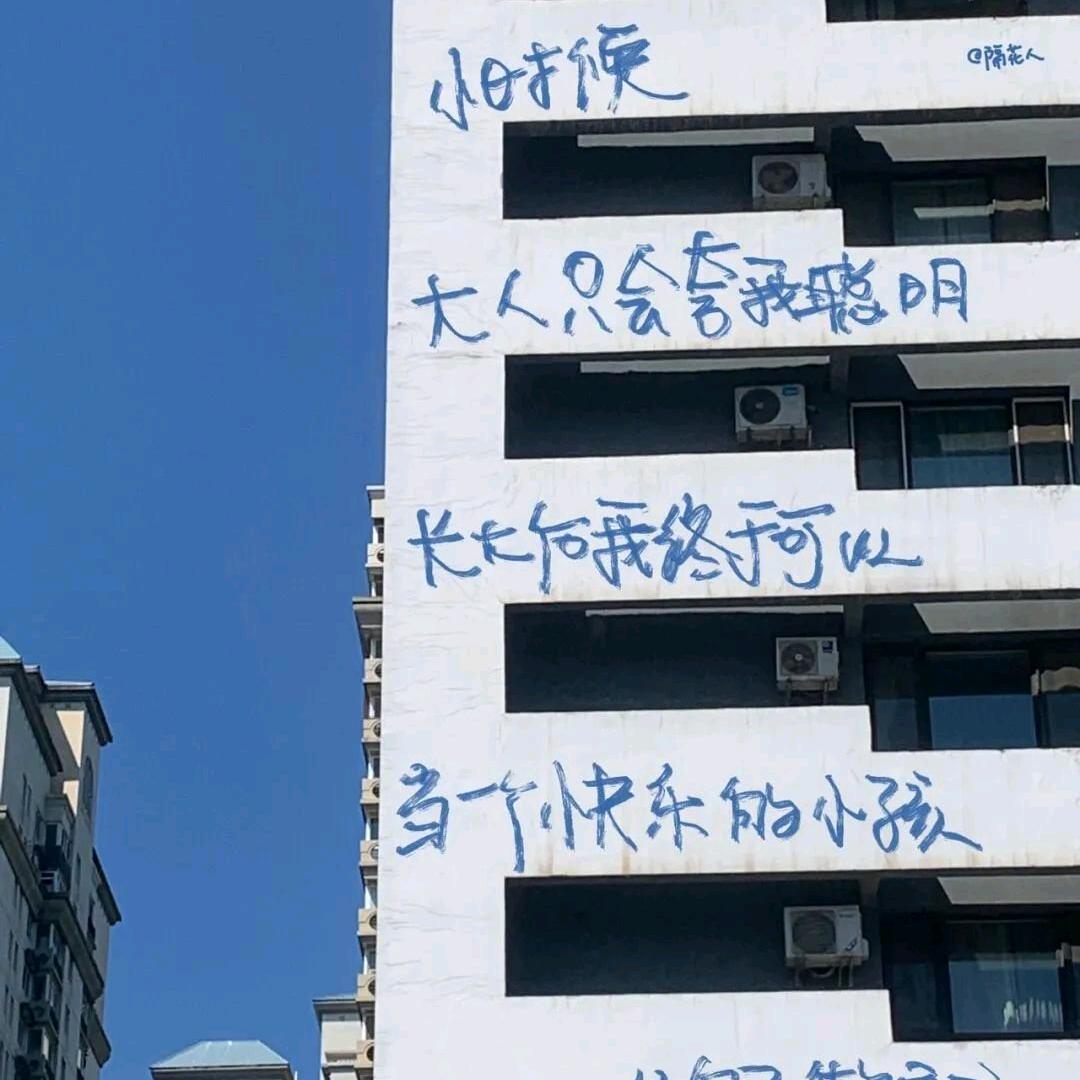 小时候
@隔花人
大人只会夸我聪明
长大后我终于可以
当一个快乐的小孩